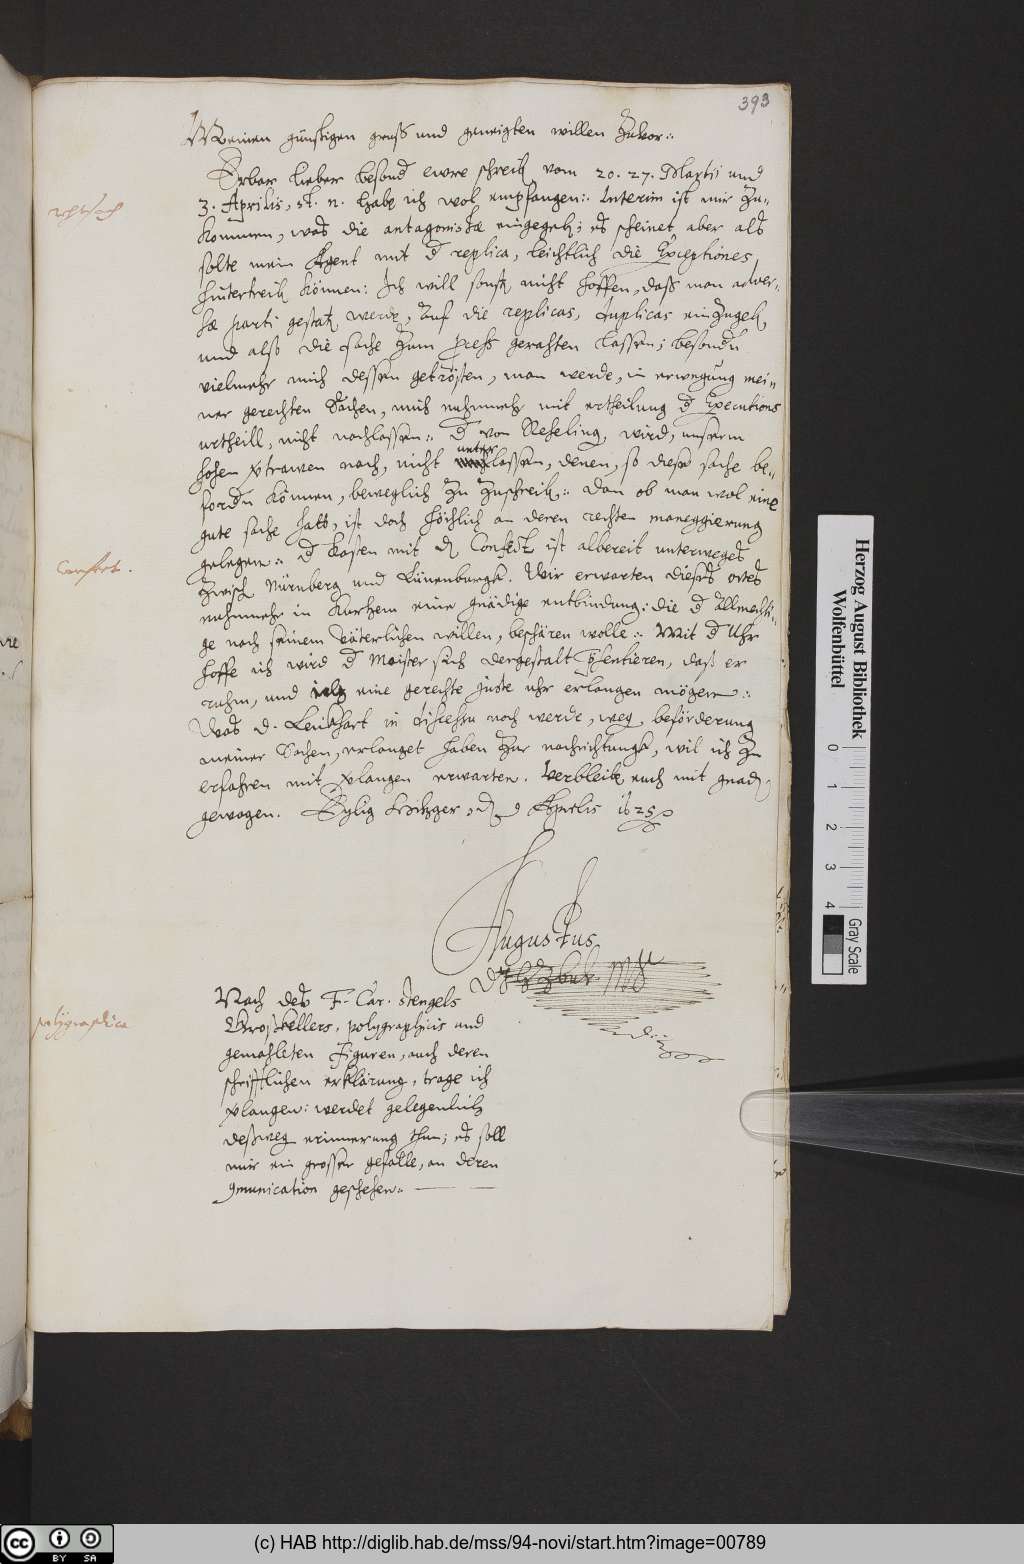 393
Meinen günstigen gruß und geneigten willen zuvor::
Erbar lieber besond ewre schreib vom 20. 27. Martii und
3. Aprilis, st. n. habe ich wol empfangen:. Interim ist mir zu=
kommen, was die antagonistæ eingegeb; es scheinet aber als
solte mein Agent mit d replica, leichtlich die Exceptiones
hintertreib können: Ich will sonst nicht hoffen, daß man adver=
sæ parti gestat werde, auf die replicas, duplicas einzugeb,
und also die sache zum proceß gerahten lassen; besondn
vielmehr mich dessen getrösten, man werde, in erwegung mei=
ner gerechten Sachen, mich nuhnmehr mit ertheilung d Executions
urtheill, nicht nachlassen:. d von Reheling, wird, unserm
hohen vtrawen nach, nicht unterlassen, denen, so diese sache be=
fordn können, beweglich zu zuschreib:. dan ob man wol eine
gute sache hatt, ist doch höchlich an deren rechten maneggierung
gelegen:. d kasten mit dn Confect ist albereit unterweges
zwisch Nürnberg und Lünenburgk. Wir erwarten dieses ortes
nuhnmehr in kurtzem eine gnädige entbindung: die d Allmechti=
ge nach seinem Väterlichen willen, beschären wolle:. Mit d Uhr
hoffe ich wird d Meister sich dergestalt præsentieren, daß er
ruhm, und eine gerechte juste uhr erlangen mögen:.
Was d. Leuckhart in noch werde, weg beförderung
meiner Sachen, erlanget haben zur nachrichtungk, wil ich zu
erfahren mit vlangen erwarten. Verbleibe euch mit gnad
gewogen. Eylig Hitzger, dn 9 Aprilis 1625
Augustus
D: H Z B u L Mp
Nach des F. Car. Stengels
Großkellers, polygraphicis und
gemahleten Figuren, auch deren
schrifftlichen erklärung, trage ich
vlangen: werdet gelegenlich
deßweg erinnerung thun; es soll
mir ein grosser gefalle, an deren
9munication geschehen:.
Confect.
polygraphica
Herzog August Bibliothek
Wolfenbüttel
0 1 2 3 4
Gray Scale
cc BY SA
(c) HAB http://diglib.hab.de/mss/94-novi/start.htm?image=00789